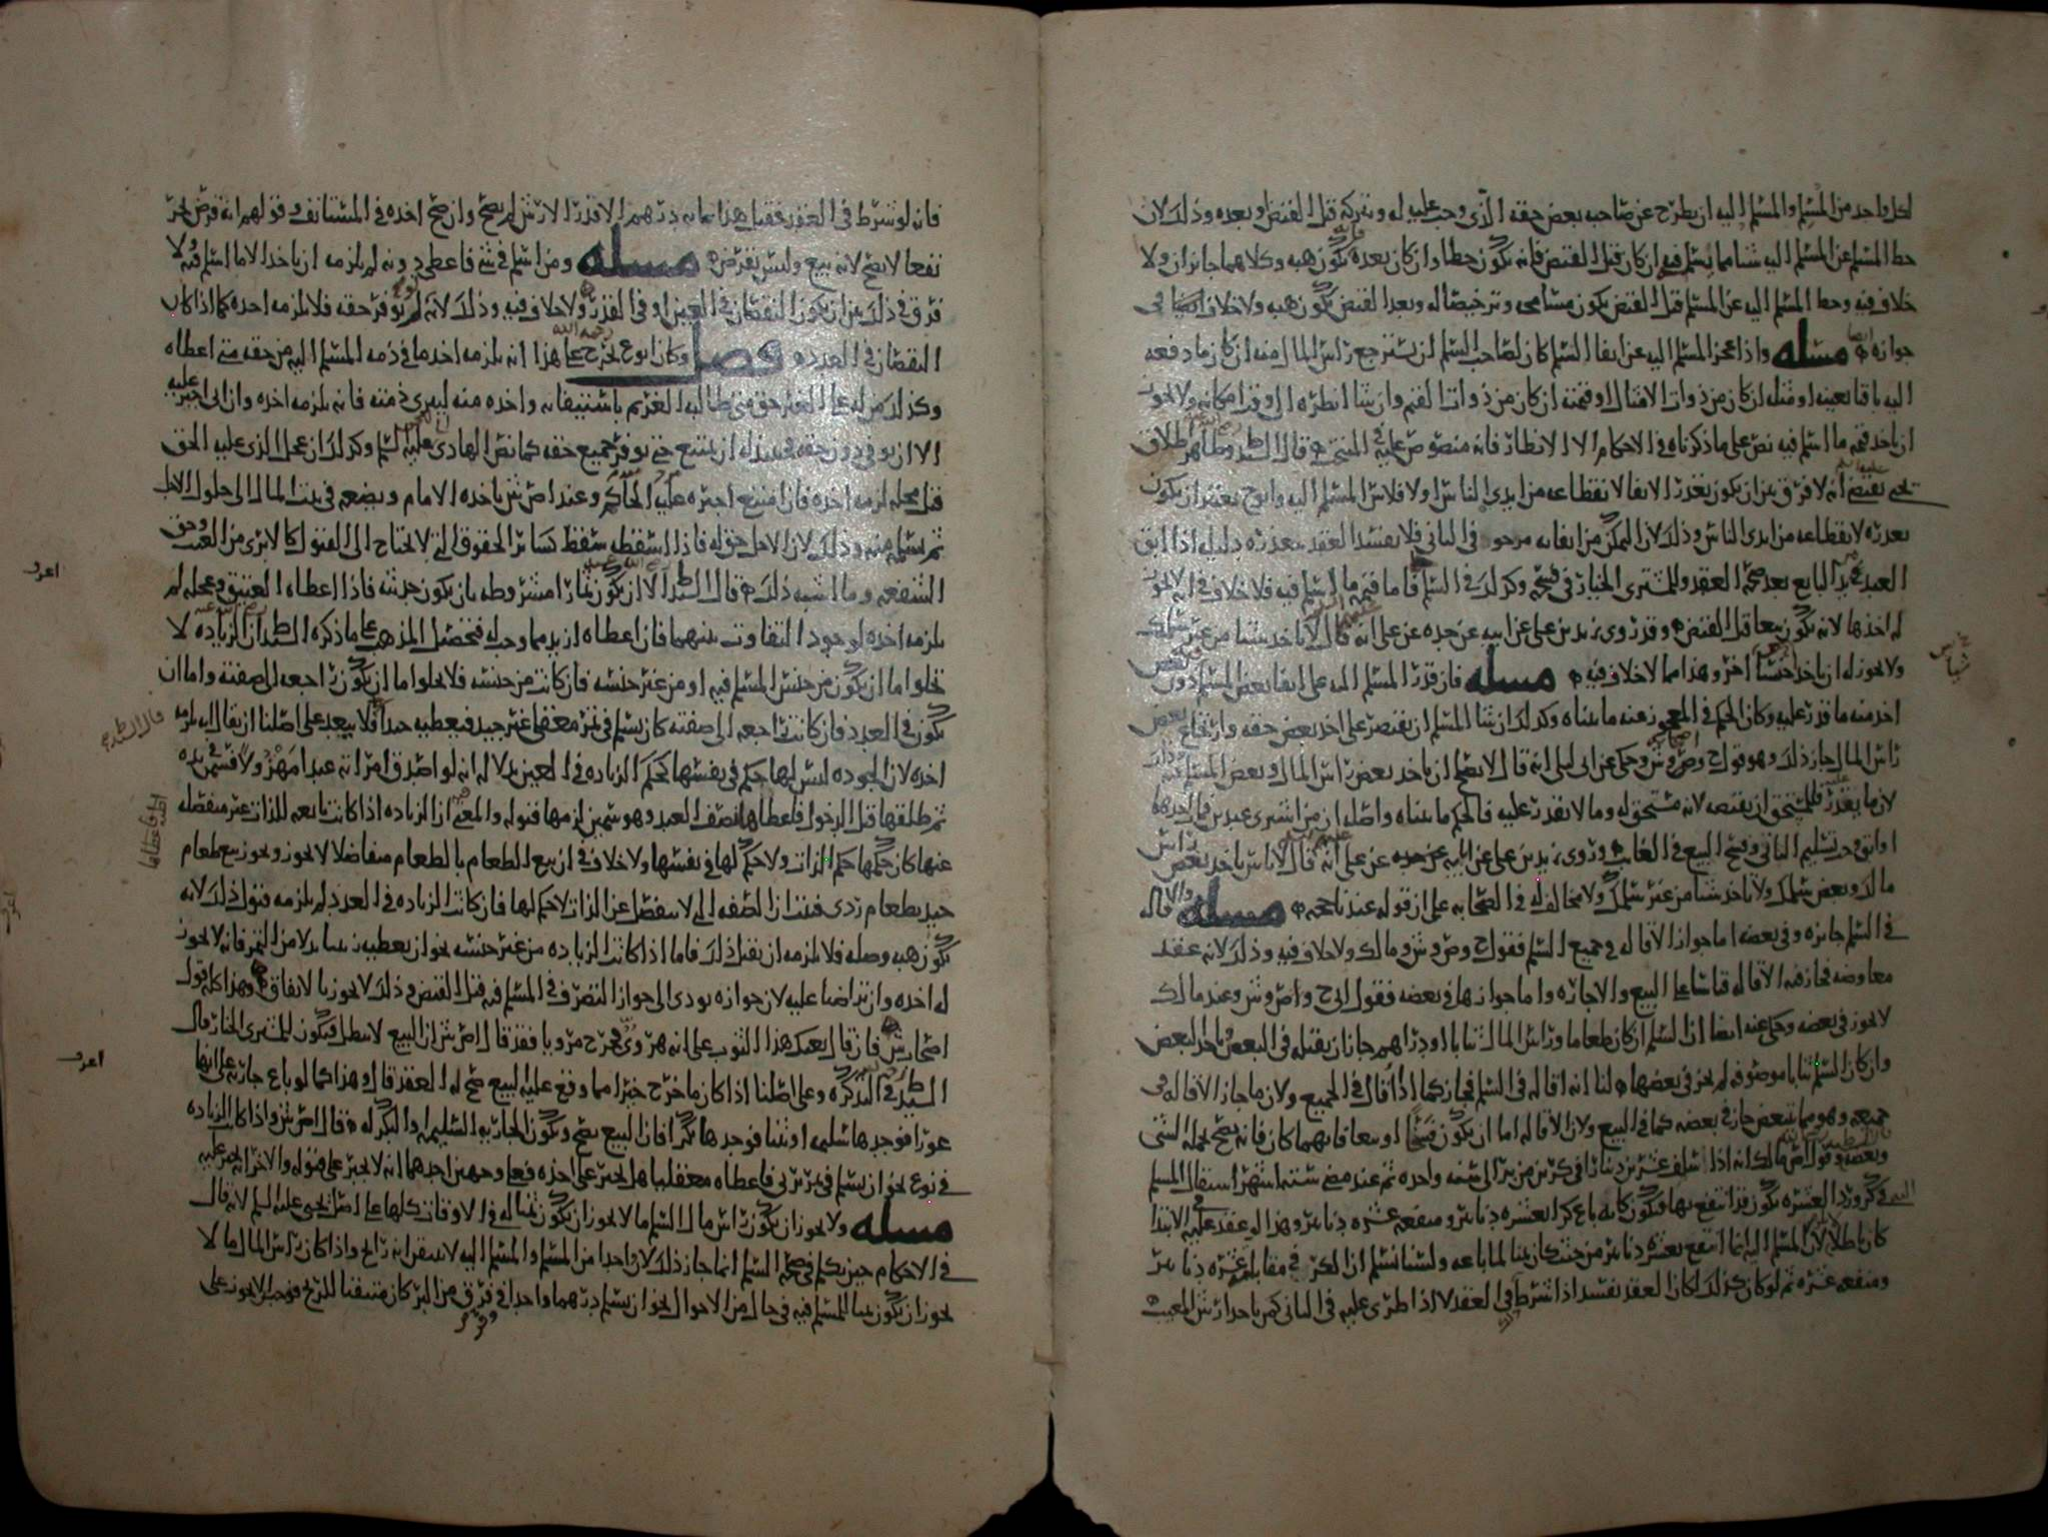 لكل واحد من المسلم والمسلم اليه ان يطرح عن صاحبه بعض حقه الذي وجب عليه له ويتركه قبل القبض وبعده وذلك لان
حط المسلم عن المسلم اليه شيئا مما يسلم فيه ان كان قبل القبض فانه يكون حطا وان كان بعده فانه يكون هبه وكلاهما جائزان ولا
خلاف فيه وحط المسلم اليه عن المسلم قبل القبض يكون مسامحه وترخيصا له وبعد القبض يكون هبه ولا خلاف ايضا في
جوازه مسله واذا عجز المسلم اليه عن ايفا السلم كان لصاحب السلم ان يسترجع راس المال منه ان كان ما دفعه
اليه باقيا بعينه او مثله ان كان من ذوات الامثال او قيمته ان كان من ذوات القيم وان شا انظره الى وقت امكانه ولا يجوز
ان ياخد قيمه ما اسلم فيه نص على ما ذكرناه في الاحكام الا الانظار فانه منصوص عليه في المنتخب قال السيد وظاهر اطلاق
يحيى يقتضي انه لا فرق بين ان يكون تعذر الايفا لانقطاعه من ايدي الناس او لافلاس المسلم اليه و ابوح يعتبر ان يكون
تعدره لانقطاعه من ايدي الناس وذلك لان التمكن من ايفائه مرجو في الثاني فلا يفسد العقد بتعذره دليله اذا ابق
العبد من يد البايع بعد صحه العقد وللمشتري الخيار في فسخه وكذلك في السلم فاما قيمه ما اسلم فيه فلا خلاف في انه لا يجوز
له اخذها لانه يكون بيعا قبل القبض وقد روى زيد بن على عن ابيه عن جده عن على انه قال لا ياخد شيئا من غير سلمك
ولا يجوز له ان ياخد جنسا اخر وهذا مما لا خلاف فيه مسله فان قدر المسلم اليه على ايفا بعض المسلم دون بعض
اخد منه ما قدر عليه وكان الحكم في المعجوز عنه ما بيناه وكذلك ان شا المسلم ان يقتصر على اخد بعض حقه وارتجاع بعض
راس المال جاز ذلك وهو قول ح وص وش وحكى عن ابن ابي ليلى انه قال لا يصح ان ياخد بعض راس المال وبعض المسلم فيه
لان ما يقدر عليه فللمستحق ان يقبضه لانه مستحق له وما لا يقدر عليه فالحكم ما بيناه واصله ان من اشترى عبدين فمات احدهما
او ابق وجب تسليم الباقي وفسخ البيع في الغائب وروى زيد بن على عن ابيه عن جده عن على انه قال لا باس ياخد بعض راس
مالك وبعض سلمك ولا ياخد شيئا من غير سلمك ولا مخالف له في الصحابه على ان قوله عندنا حجه مسله والاقاله
في السلم جائزه وفي بعضه اما جواز الاقاله في جميع السلم فقول ح وص وش ومالك ولا خلاف فيه وذلك لانه عقد
معاوضه فجاز فيه الاقاله قياسا على البيع والاجازه واما جوازها في بعضه فقول ابي ح واص وش وعند مالك
لا يجوز في بعضه وحكى عنه ايضا ان السلم ان كان طعاما وراس المال ثيابا او دراهم جاز ان يقيله في البعض وياخذ البعض
وان كان السلم ثيابا موصوفه لم يجز في بعضها لنا انه اقاله في السلم فجاز كما اذا اقال في الجميع ولان ما جاز الاقاله في
جميعه وهو مما يتبعض جاز في بعضه كما في البيع ولان الاقاله اما ان يكون فسخا او بيعا فايهما كان فانه يصح في جمله الشي
وبعضه وقول مالك انه اذا اسلف عشرين دينارا في كرين من بر الى سنه واحده ثم عند مضي سته اشهر استقال المسلم
في كر ورد العشره يكون قد انتفع بها ويكون كانه باع كرا بعشره دنانير ومنفعه عشره دنانير وهذا لو عقد عليه في الابتدا
كان باطلا لان المسلم اليه انما انتفع بعشره دنانير من حيث كان ثمنا لما باعه ولسنا نسلم ان الكر في مقابله عشره دنانير
ومنفعه عشره ثم لو كان كذلك لكان العقد يفسد اذا شرط في العقد لا اذا طرى عليه في الثاني كمن ياخذ ارش المعيب
شباس
فانه لو شرط في العقد فقيل هذا بمائه درهم الا قدر الارش لم يصح وان صح اخذه في المستانف وقولهم انه قرض يجر
نفعا لا يصح لانه بيع وليس بقرض مسله ومن اسلم في شي فاعطى دونه لم يلزمه ان ياخد الا ما اسلم فيه ولا
فرق في ذلك بين ان يكون النقصان في العين او في القدر ولا خلاف فيه وذلك لانه لم يوفر حقه فلا يلزمه اخذه كما اذا كان
النقصان في العدد فصل وكان ابوع يخرج على هذا انه يلزمه اخذ ما في ذمه المسلم اليه من حقه متى اعطاه
وكذلك من له على الغير حق متى طالبه الغريم باستيفائه واخذه منه ليبري ذمته فانه يلزمه اخذه وان ابى اجبر عليه
الا ان يوفى دون حقه فحينئذ له ان يمتنع حتى يوفر جميع حقه كما نص الهادي عليه السلم وكذلك ان عجل الذي عليه الحق
قبل محله لزمه اخذه فان امتنع اجبره عليه الحاكم وعند اص ش ياخذه الامام ويضعه في بيت المال الى حلول الاجل
ثم يسلمه منه وذلك لان الاجل حق له فاذا اسقطه سقط كسائر الحقوق التي لا يحتاج الى القبول كالابرى من العيب وحق
الشفعه وما اشبه ذلك قال السيد الا ان يكون ثمارا مشروطه بان يكون حديثه فاذا اعطاه العتيق في محله لم
يلزمه اخذه لوجود التفاوت بينهما فان اعطاه ازيد مما وجب له فتحصيل المذهب على ما ذكره السيد ان الزياده لا
تخلوا ما ان يكون من جنس المسلم فيه او من غير جنسه فان كانت من جنسه فلا يخلوا ما ان يكون راجعه الى صفته واما ان
يكون في العدد فان كانت راجعه الى صفته كان يسلم في تمر معقلي غير جيد فيعطيه جيدا فلا يبعد على اصلنا ان يقال انه يلزمه
اخذه لان الجوده ليس لها حكم في نفسها كحكم الزياده في العين بدلاله انه لو اصدق امراته عبدا مهزولا فسمن في يده
ثم طلقها قبل الدخول فاعطاها نصف العبد وهو سمين لزمها قبوله والمعنى ان الزياده اذا كانت تابعه للذات غير منفصله
عنها كان حكمها حكم الذات ولا حكم لها في نفسها ولا خلاف في ان بيع الطعام بالطعام متفاضلا لا يجوز ويجوز بيع طعام
جيد بطعام ردي فثبت ان الصفه التي لا تنفصل عن الذات لا حكم لها فان كانت الزياده في العدد لم يلزمه قبول ذلك لانه
يكون هبه وصله فلا يلزمه ان يقبل ذلك فاما اذا كانت الزياده من غير جنسه نحو ان يعطيه زبيبا بدلا من التمر فانه لا يجوز
له اخذه وان تراضيا عليه لان جوازه يودى الى جواز التصرف في المسلم فيه قبل القبض وذلك لا يجوز بالاتفاق وهذا كله قول
اصحاب ش فان قال بعتك هذا الثوب على انه هروى فخرج مرويا فقد قال اص ش ان البيع لا يبطل ويكون للمشترى الخيار قال
السيد في التذكره وعلى اصلنا اذا كان ما خرج خيرا مما وقع عليه البيع صح له العقد قال وهذا كما لو باع جاريه على انها
عورا فوجدها سليمه او ثيبا فوجدها بكرا فان البيع يصح ويكون الجاريه السليمه او البكر له قال اص ش واذا كان الزياده
في نوع نحو ان يسلم في تمر برني فاعطاه معقليا هل يجبر على اخذه فعلى وجهين احدهما انه لا يجبر على قبوله والاخر انه يجبر عليه
مسله ولا يجوز ان يكون راس مال السلم ما لا يجوز ان يكون ثمنا له في الاوقات كلها على اصل يحيى عليه السلم لانه قال
في الاحكام حين تكلم في صحه السلم انما جاز ذلك لان واحدا من المسلم والمسلم اليه لا يتيقن انه رابح واذا كان راس المال ما لا
يجوز ان يكون ثمنا للمسلم فيه في حال من الاحوال نحو ان يسلم درهما واحدا في فرق من البر كان متيقنا للربح فوجب الا يجوز على
اعرف
قال السيد
اعرف